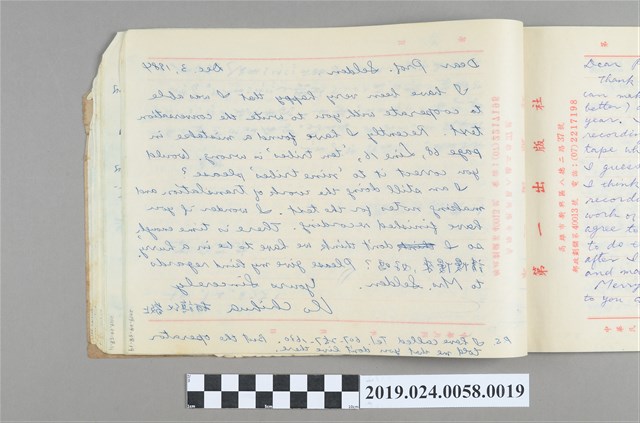 Dear Prof. Selden Dec. 3, 1984
I have been very happy that I was able
to cooperate with you to write the conversation
text. Recently I have found a mistake in
page 68, Line 16, "ten tribes" is wrong. Would
you correct it to "nine tribes" please?
I am still doing the work of translation and
making notes for the text. I wonder if you
have finished recording. There is time enough
so I don't think we have to be in a hurry.
Please give my kind regards
to Mrs. Selden.
Yours Sincerely,
P.S. I have called Tel. 607-267-1610. But the operator
told me that you don't live there.
第一出版社
高雄市新興區八德二路37號
電話:(07)2217198
Dear P
Thank
can
better)
year.
recordin
tape wh
I guess
I think
record
work of
agree to
to do
after I
and ma
Merry
to you
2019.024.0058.0019